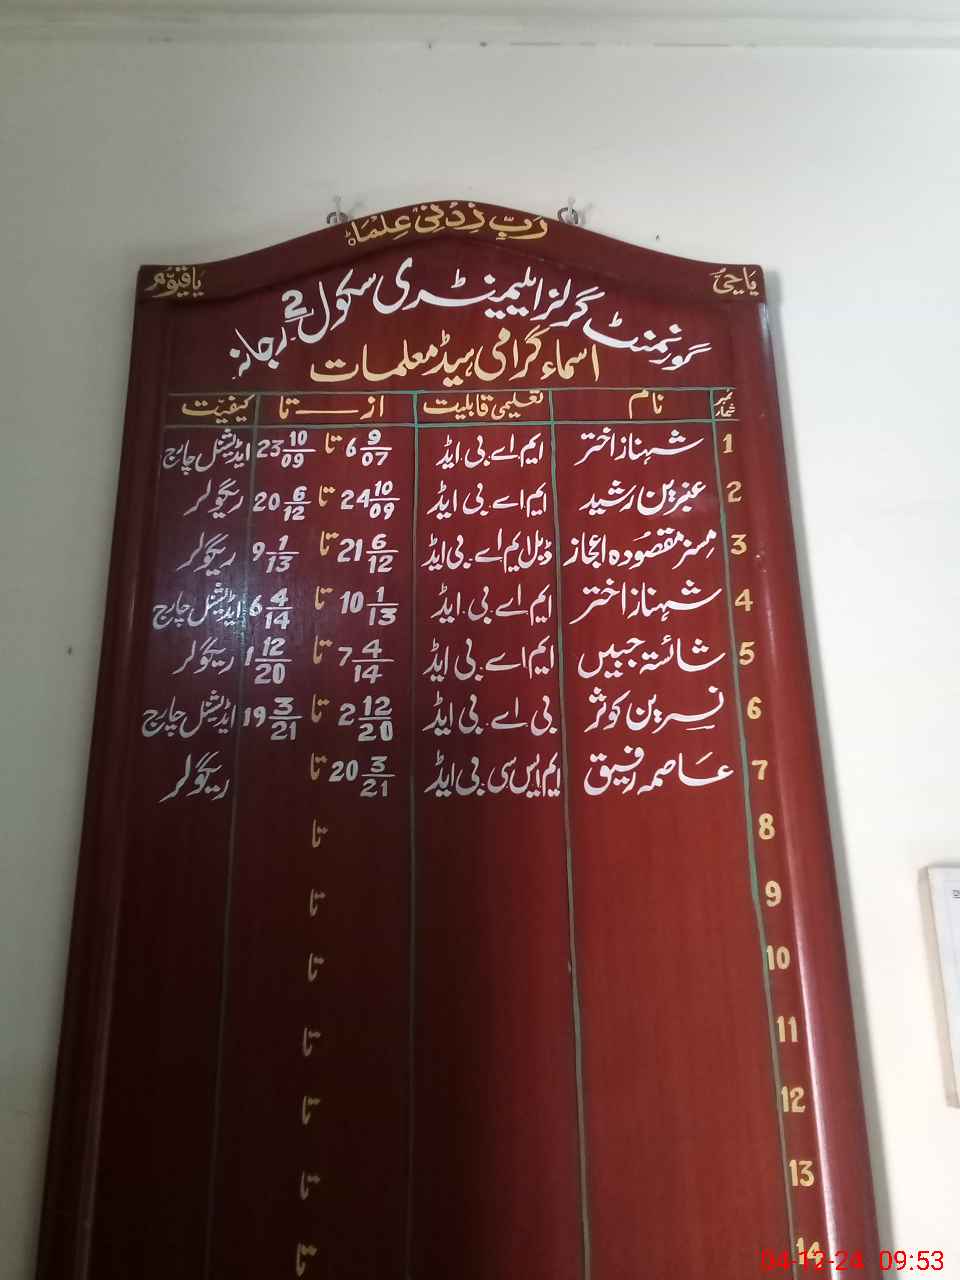 رَبِّ زِدْنِیْ عِلْمًا
یَاحَیُّ یَاقَیُّوْمُ
گورنمنٹ گرلز ایلیمنٹری سکول 2 رجانہ
اسماء گرامی ہیڈ معلمات
نمبر شمار نام تعلیمی قابلیت از تا کیفیّت
1 شہناز اختر ایم اے بی ایڈ 6 9/07 تا 23 10/09 ایڈیشنل چارج
2 عنبرین رشید ایم اے بی ایڈ 24 10/09 تا 20 6/12 ریگولر
3 مسز مقصودہ اعجاز ڈبل ایم اے بی ایڈ 21 6/12 تا 9 1/13 ریگولر
4 شہناز اختر ایم اے بی ایڈ 10 1/13 تا 6 4/14 ایڈیشنل چارج
5 شائستہ جبیں ایم اے بی ایڈ 7 4/14 تا 1 12/20 ریگولر
6 نسرین کوثر بی اے بی ایڈ 2 12/20 تا 19 3/21 ایڈیشنل چارج
7 عاصمہ رفیق ایم ایس سی بی ایڈ 20 3/21 تا ریگولر
8 تا
9 تا
10 تا
11 تا
12 تا
13 تا
14 تا
04-12-24 09:53